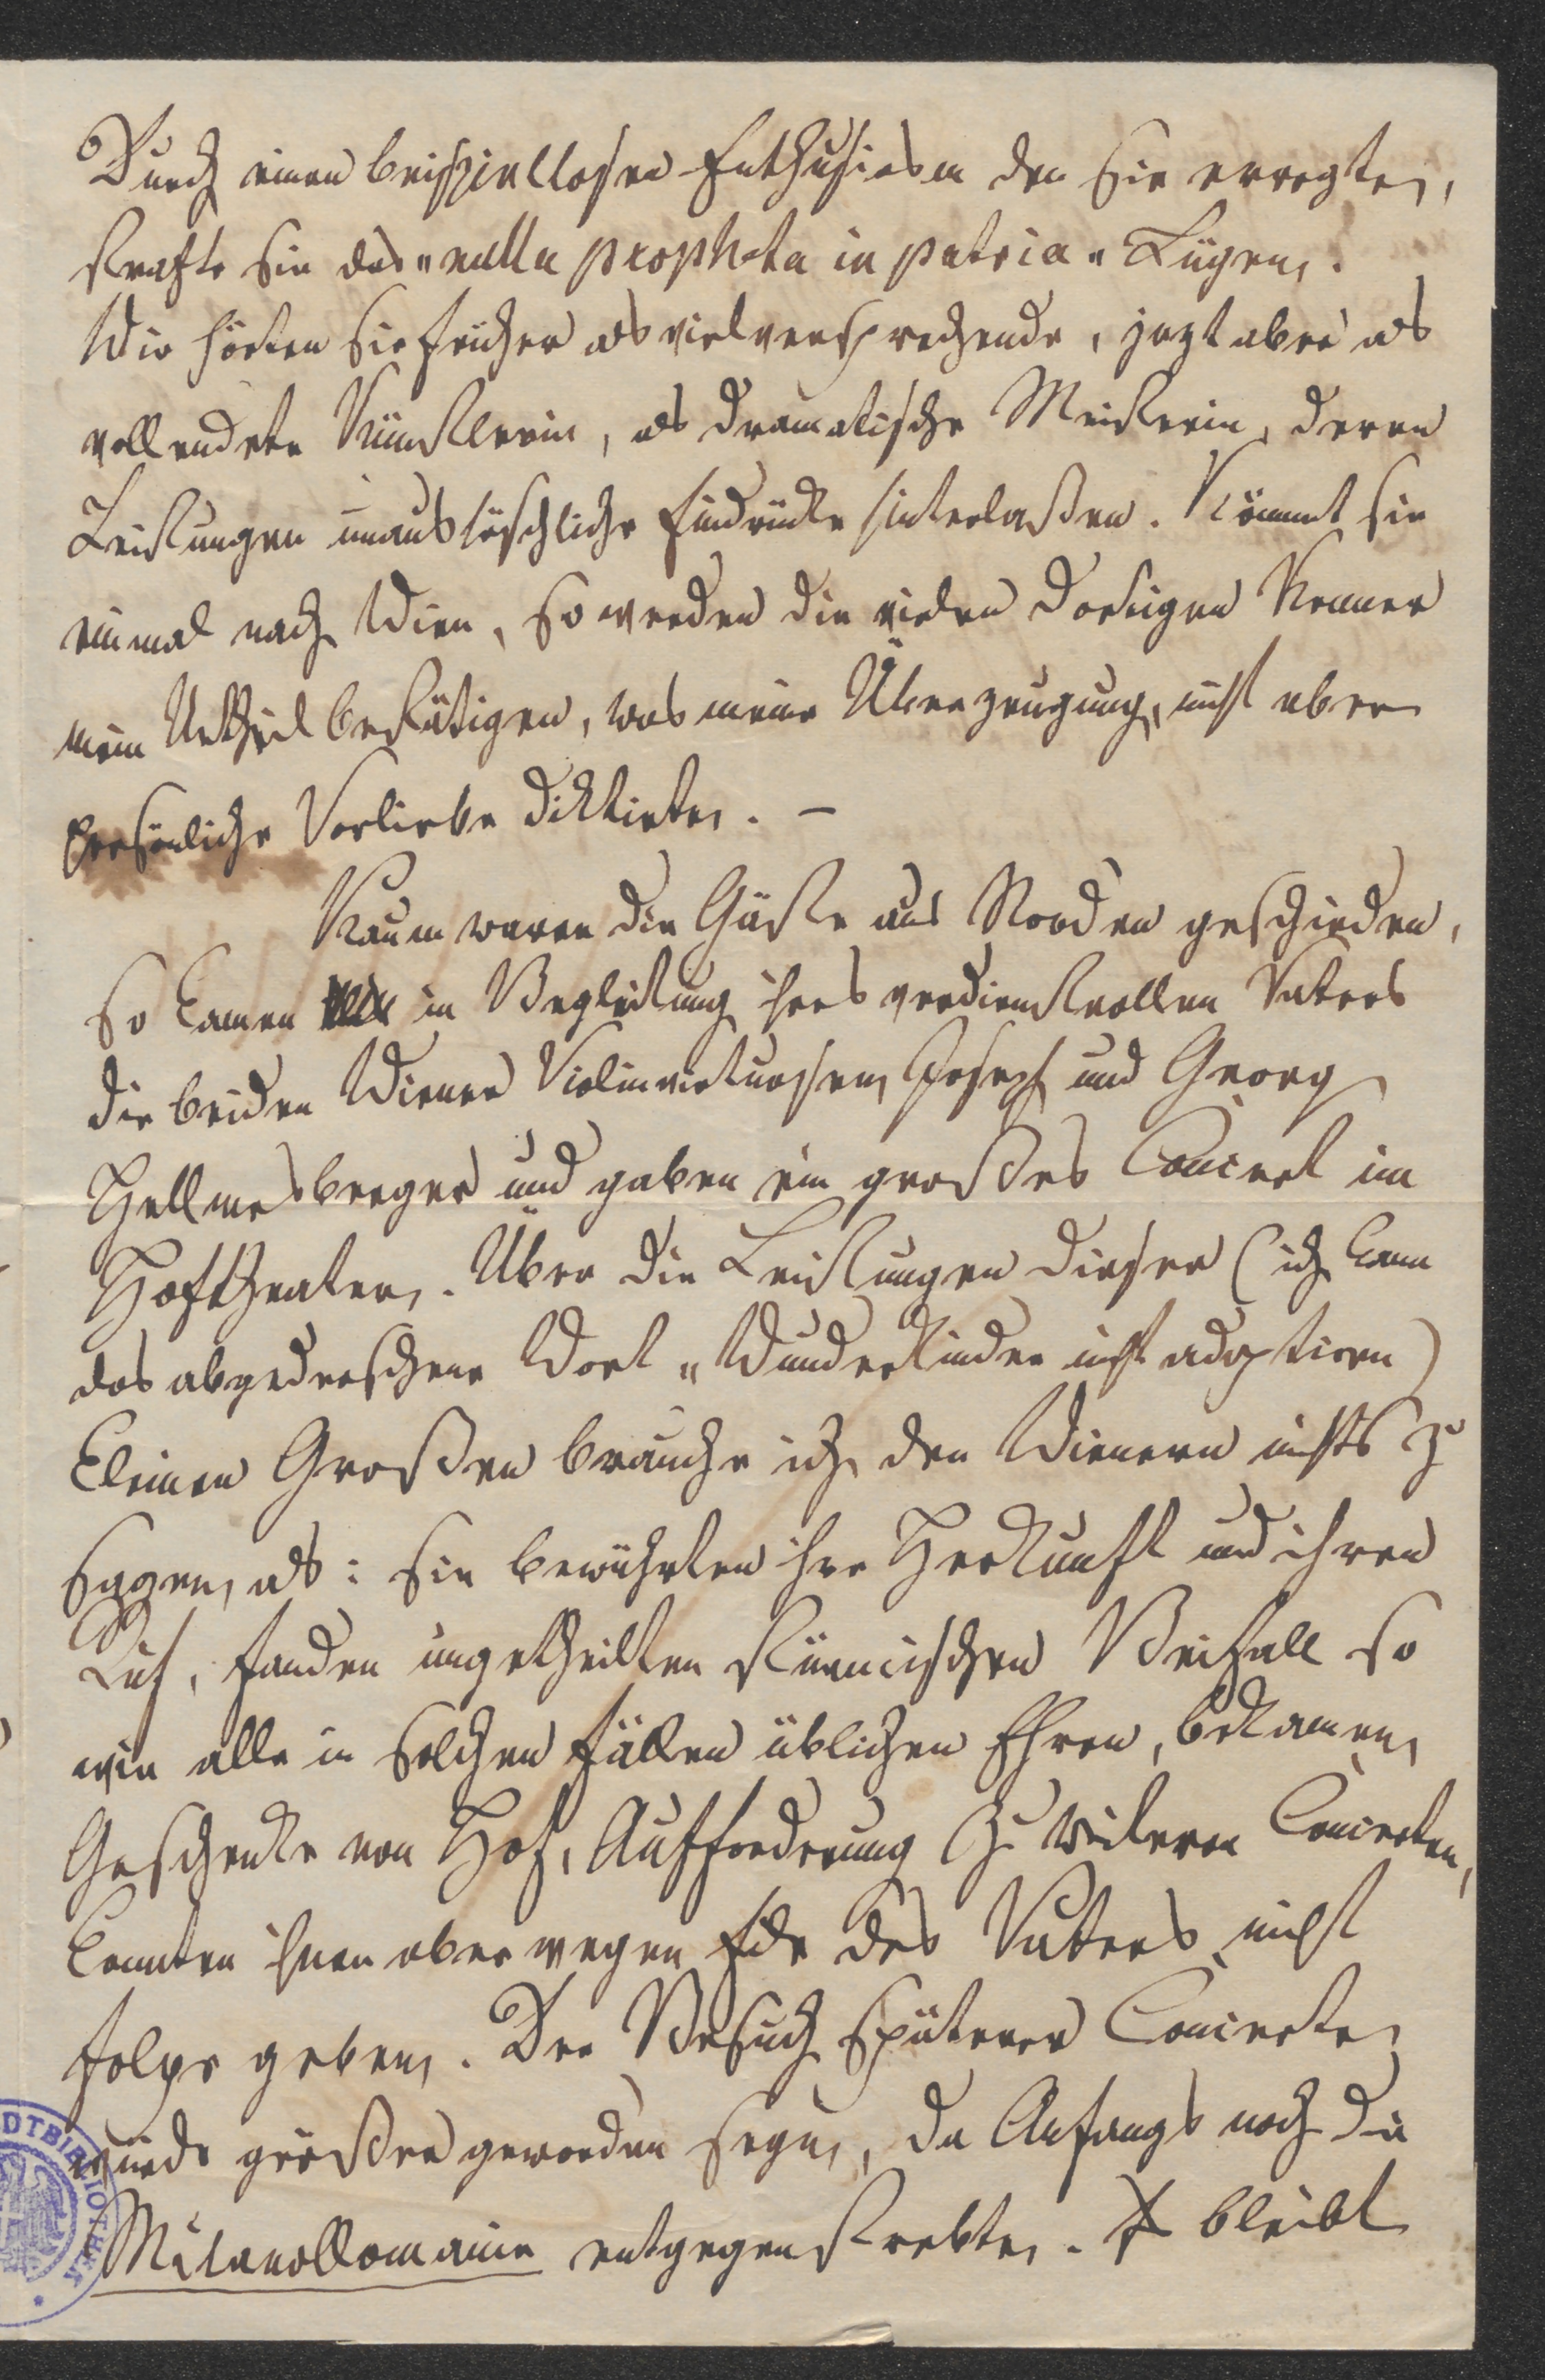 Durch einen beispiellosen Enthusiasm den sie erregte,
strafte sie das „nulla propheta in patria" Lügen.
Wir hörten sie früher als vielversprechende, jezt aber als
vollendete Künstlerin, als dramatische Meisterin, deren
Leistungen unauslöschliche Eindrücke hinterlaßen. Kömmt sie
einmal nach Wien, so werden die vielen dortigen Kenner
mein Urtheil bestätigen, was meine Überzeugung, nicht aber
persönliche Vorliebe diktirte. –
Kaum waren die Gäste aus Norden geschieden,
so kamen in Begleitung ihres verdienstvollen Vaters
die beiden Wiener Violinvirtuosen, Joseph und Georg
Hellmesberger und gaben ein großes Concert im
Hoftheater. Über die Leistungen dieser (ich kann
das abgedroschene Wort „Wunderkinder nicht adoptiren)
kleinen Großen brauche ich den Wienern nichts zu
sagen, als: sie bewährten ihre Herkunft und ihren
Ruf, fanden ungetheilten stürmischen Beifall so
wie alle in solchen Fällen üblichen Ehren, bekamen
Geschenke von Hof, Aufforderung zu weiteren Concerten,
konnten ihnen aber wegen Eile des Vaters nicht
Folge geben. Der Besuch späterer Concerte
würde größer geworden seyn, da Anfangs noch die
Milanollomanie entgegenstrebte. Es bleibt
DTBIBLIOTHEK